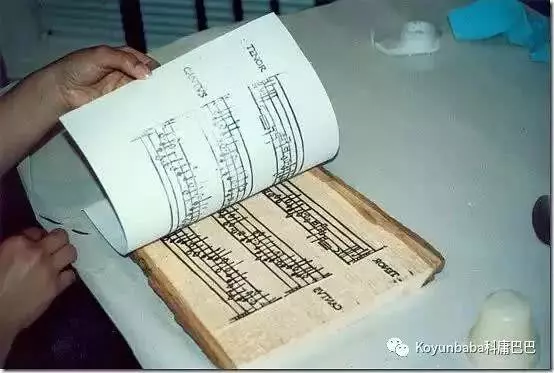 TENOR
CANTUS
Koyunbaba科庸巴巴